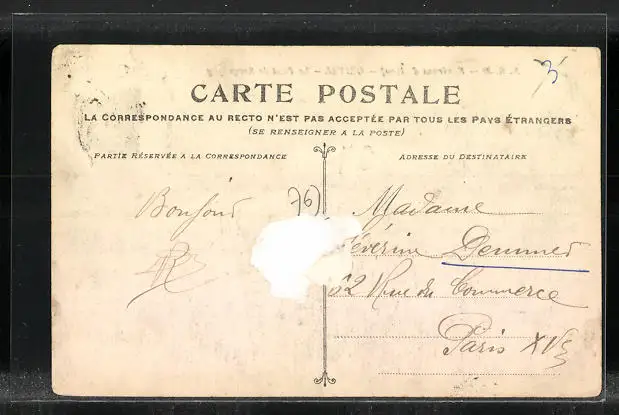 CARTE POSTALE
LA CORRESPONDANCE AU RECTO N'EST PAS ACCEPTÉE PAR TOUS LES PAYS ÉTRANGERS
(SE RENSEIGNER A LA POSTE)
PARTIE RÉSERVÉE A LA CORRESPONDANCE
ADRESSE DU DESTINATAIRE
Bonjour
76)
Madame
Séverine
2 Rue du Commerce
Paris XVe